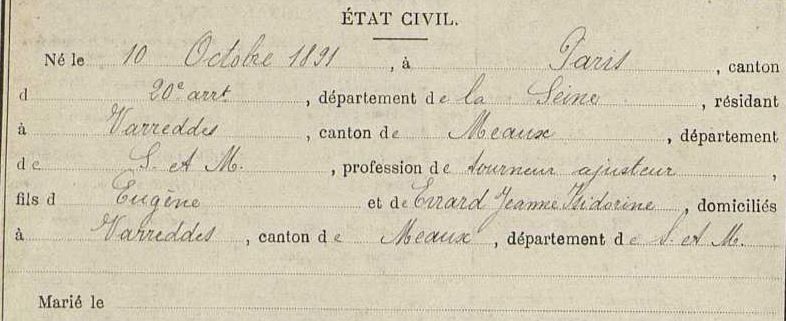 ÉTAT CIVIL.
Né le 10 Octobre 1891, à Paris, canton
d 20e arrt, département de la Seine, résidant
à Varreddes, canton de Meaux, département
de S. et M., profession de tourneur ajusteur,
fils d Eugène et de Evrard Jeanne Isidorine, domiciliés
à Varreddes, canton de Meaux, département de S. et M.
Marié le